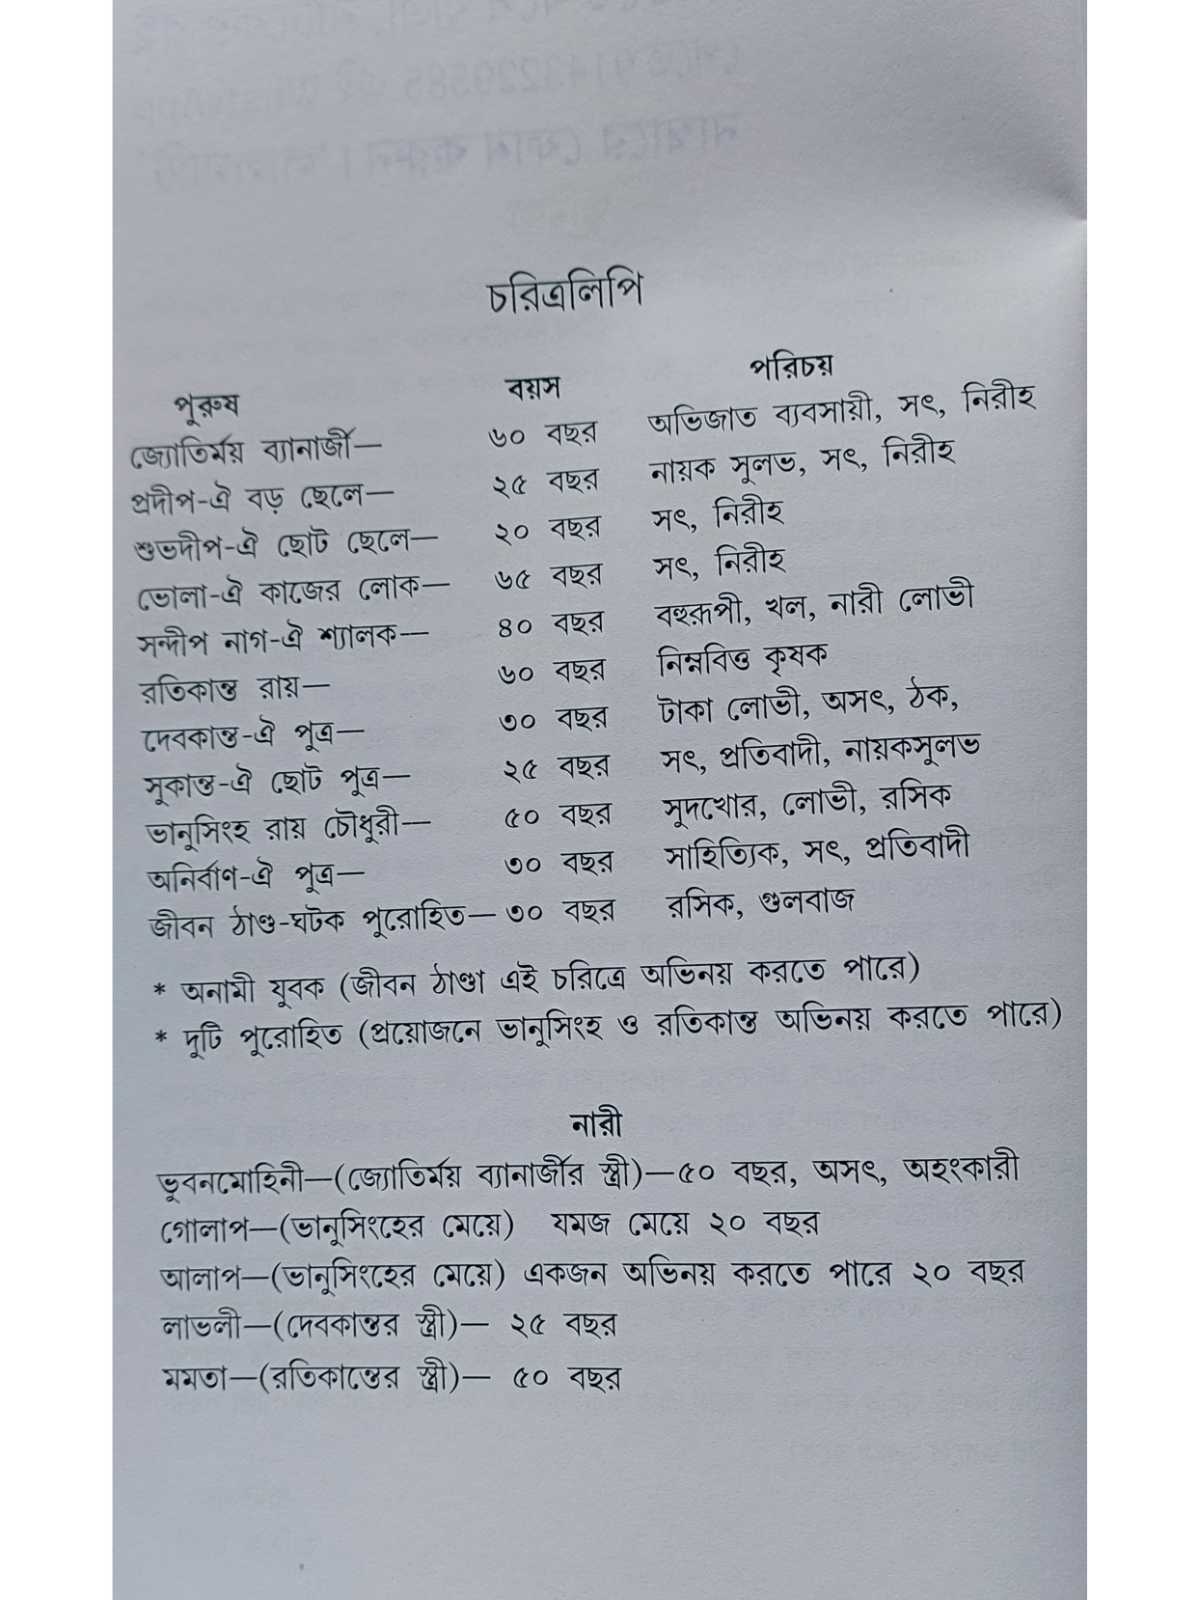 চরিত্রলিপি
পুরুষ বয়স পরিচয়
জ্যোতির্ময় ব্যানার্জী— ৬০ বছর অভিজাত ব্যবসায়ী, সৎ, নিরীহ
প্রদীপ-ঐ বড় ছেলে— ২৫ বছর নায়ক সুলভ, সৎ, নিরীহ
শুভদীপ-ঐ ছোট ছেলে— ২০ বছর সৎ, নিরীহ
ভোলা-ঐ কাজের লোক— ৬৫ বছর সৎ, নিরীহ
সন্দীপ নাগ-ঐ শ্যালক— ৪০ বছর বহুরূপী, খল, নারী লোভী
রতিকান্ত রায়— ৬০ বছর নিম্নবিত্ত কৃষক
দেবকান্ত-ঐ পুত্র— ৩০ বছর টাকা লোভী, অসৎ, ঠক,
সুকান্ত-ঐ ছোট পুত্র— ২৫ বছর সৎ, প্রতিবাদী, নায়কসুলভ
ভানুসিংহ রায় চৌধুরী— ৫০ বছর সুদখোর, লোভী, রসিক
অনির্বাণ-ঐ পুত্র— ৩০ বছর সাহিত্যিক, সৎ, প্রতিবাদী
জীবন ঠাণ্ডা-ঘটক পুরোহিত— ৩০ বছর রসিক, গুলবাজ
* অনামী যুবক (জীবন ঠাণ্ডা এই চরিত্রে অভিনয় করতে পারে)
* দুটি পুরোহিত (প্রয়োজনে ভানুসিংহ ও রতিকান্ত অভিনয় করতে পারে)
নারী
ভুবনমোহিনী—(জ্যোতির্ময় ব্যানার্জীর স্ত্রী)—৫০ বছর, অসৎ, অহংকারী
গোলাপ—(ভানুসিংহের মেয়ে) যমজ মেয়ে ২০ বছর
আলাপ—(ভানুসিংহের মেয়ে) একজন অভিনয় করতে পারে ২০ বছর
লাভলী—(দেবকান্তর স্ত্রী)— ২৫ বছর
মমতা—(রতিকান্তের স্ত্রী)— ৫০ বছর